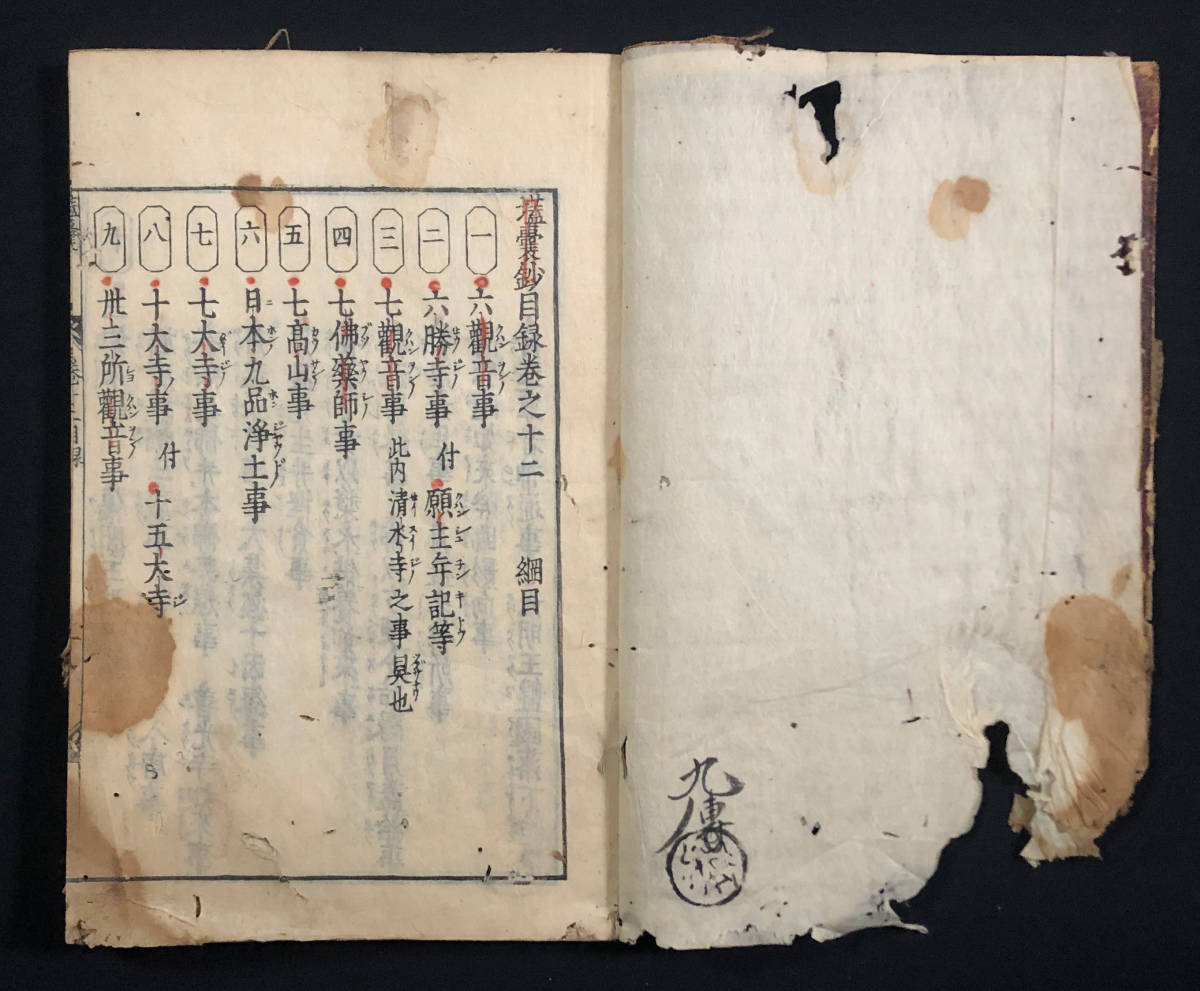 九
壒囊鈔目録卷之十二 綱目
一 六觀音事
二 六勝寺事 付 願主年記等
三 七觀音事 此内清水寺之事具也
四 七佛藥師事
五 七髙山事
六 日本九品淨土事
七 七大寺事
八 十大寺事 付 十五大寺
九 卅三所觀音事